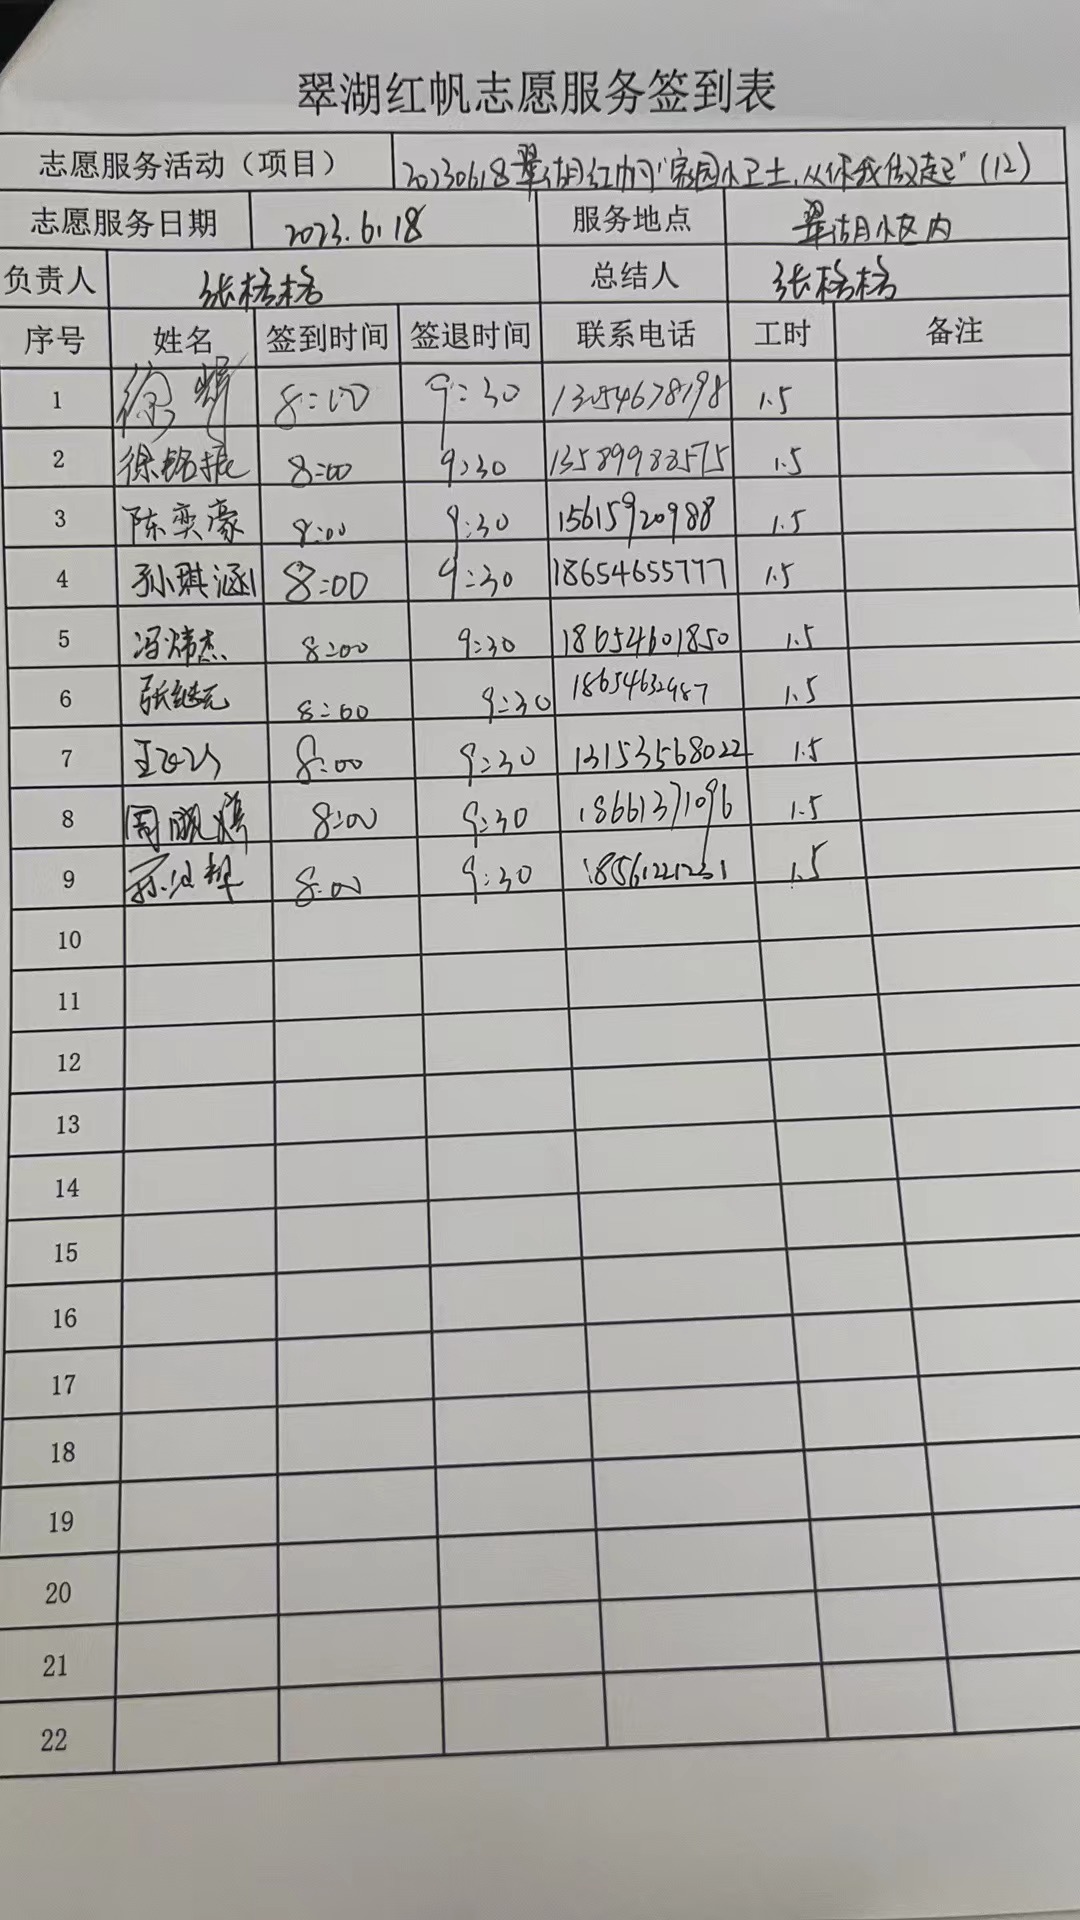 翠湖红帆志愿服务签到表
志愿服务活动（项目） 20230618翠湖红帆"家园小卫士,从你我做起"(12)
志愿服务日期 2023.6.18 服务地点 翠湖小区内
负责人 张格格 总结人 张格格
序号 姓名 签到时间 签退时间 联系电话 工时 备注
1 徐辉 8:00 9:30 13054678198 1.5
2 徐铭振 8:00 9:30 13589988575 1.5
3 陈奕豪 8:00 9:30 15615920988 1.5
4 孙琪涵 8:00 9:30 18654655777 1.5
5 冯炜杰 8:00 9:30 18654601850 1.5
6 张继元 8:00 9:30 18654632987 1.5
7 8:00 9:30 13153568022 1.5
8 周 8:00 9:30 18661371096 1.5
9 8:00 9:30 18561221231 1.5
10
11
12
13
14
15
16
17
18
19
20
21
22